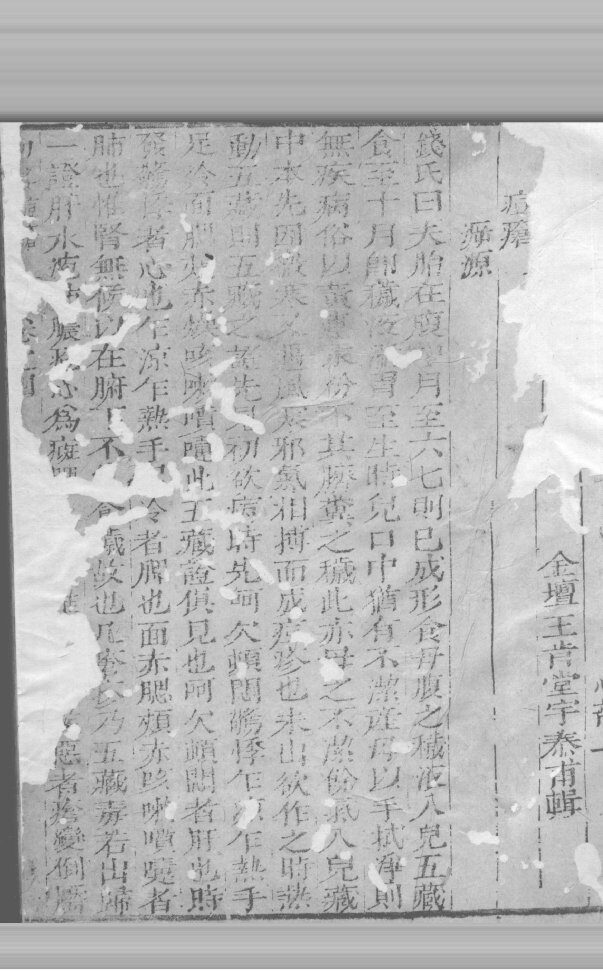 心部一
金壇王肯堂宇泰甫輯
痘瘡
痘源
錢氏曰夫胎在腹中月至六七則已成形食母腹之穢液入兒五藏
食至十月即穢液滿胃至生時兒口中猶有不潔產母以手拭淨則
無疾病俗以黃連汞粉下其臍糞之穢此亦母之不潔餘氣入兒藏
中本先因微寒又遇風寒邪氣相搏而成瘡疹也未出欲作之時熱
動五藏則五藏之證先見初欲病時先呵欠頓悶驚悸乍涼乍熱手
足冷面腮頰赤燥咳嗽噴嚏此五藏證俱見也呵欠頓悶者肝也時
發驚悸者心也乍涼乍熱手足冷者脾也面赤腮頰赤咳嗽噴嚏者
肺也惟腎無候以在腑下不食穢故也凡瘡疹乃五藏毒若出歸
一證肝水疱 膿 心為斑 惡者疹變倒黶